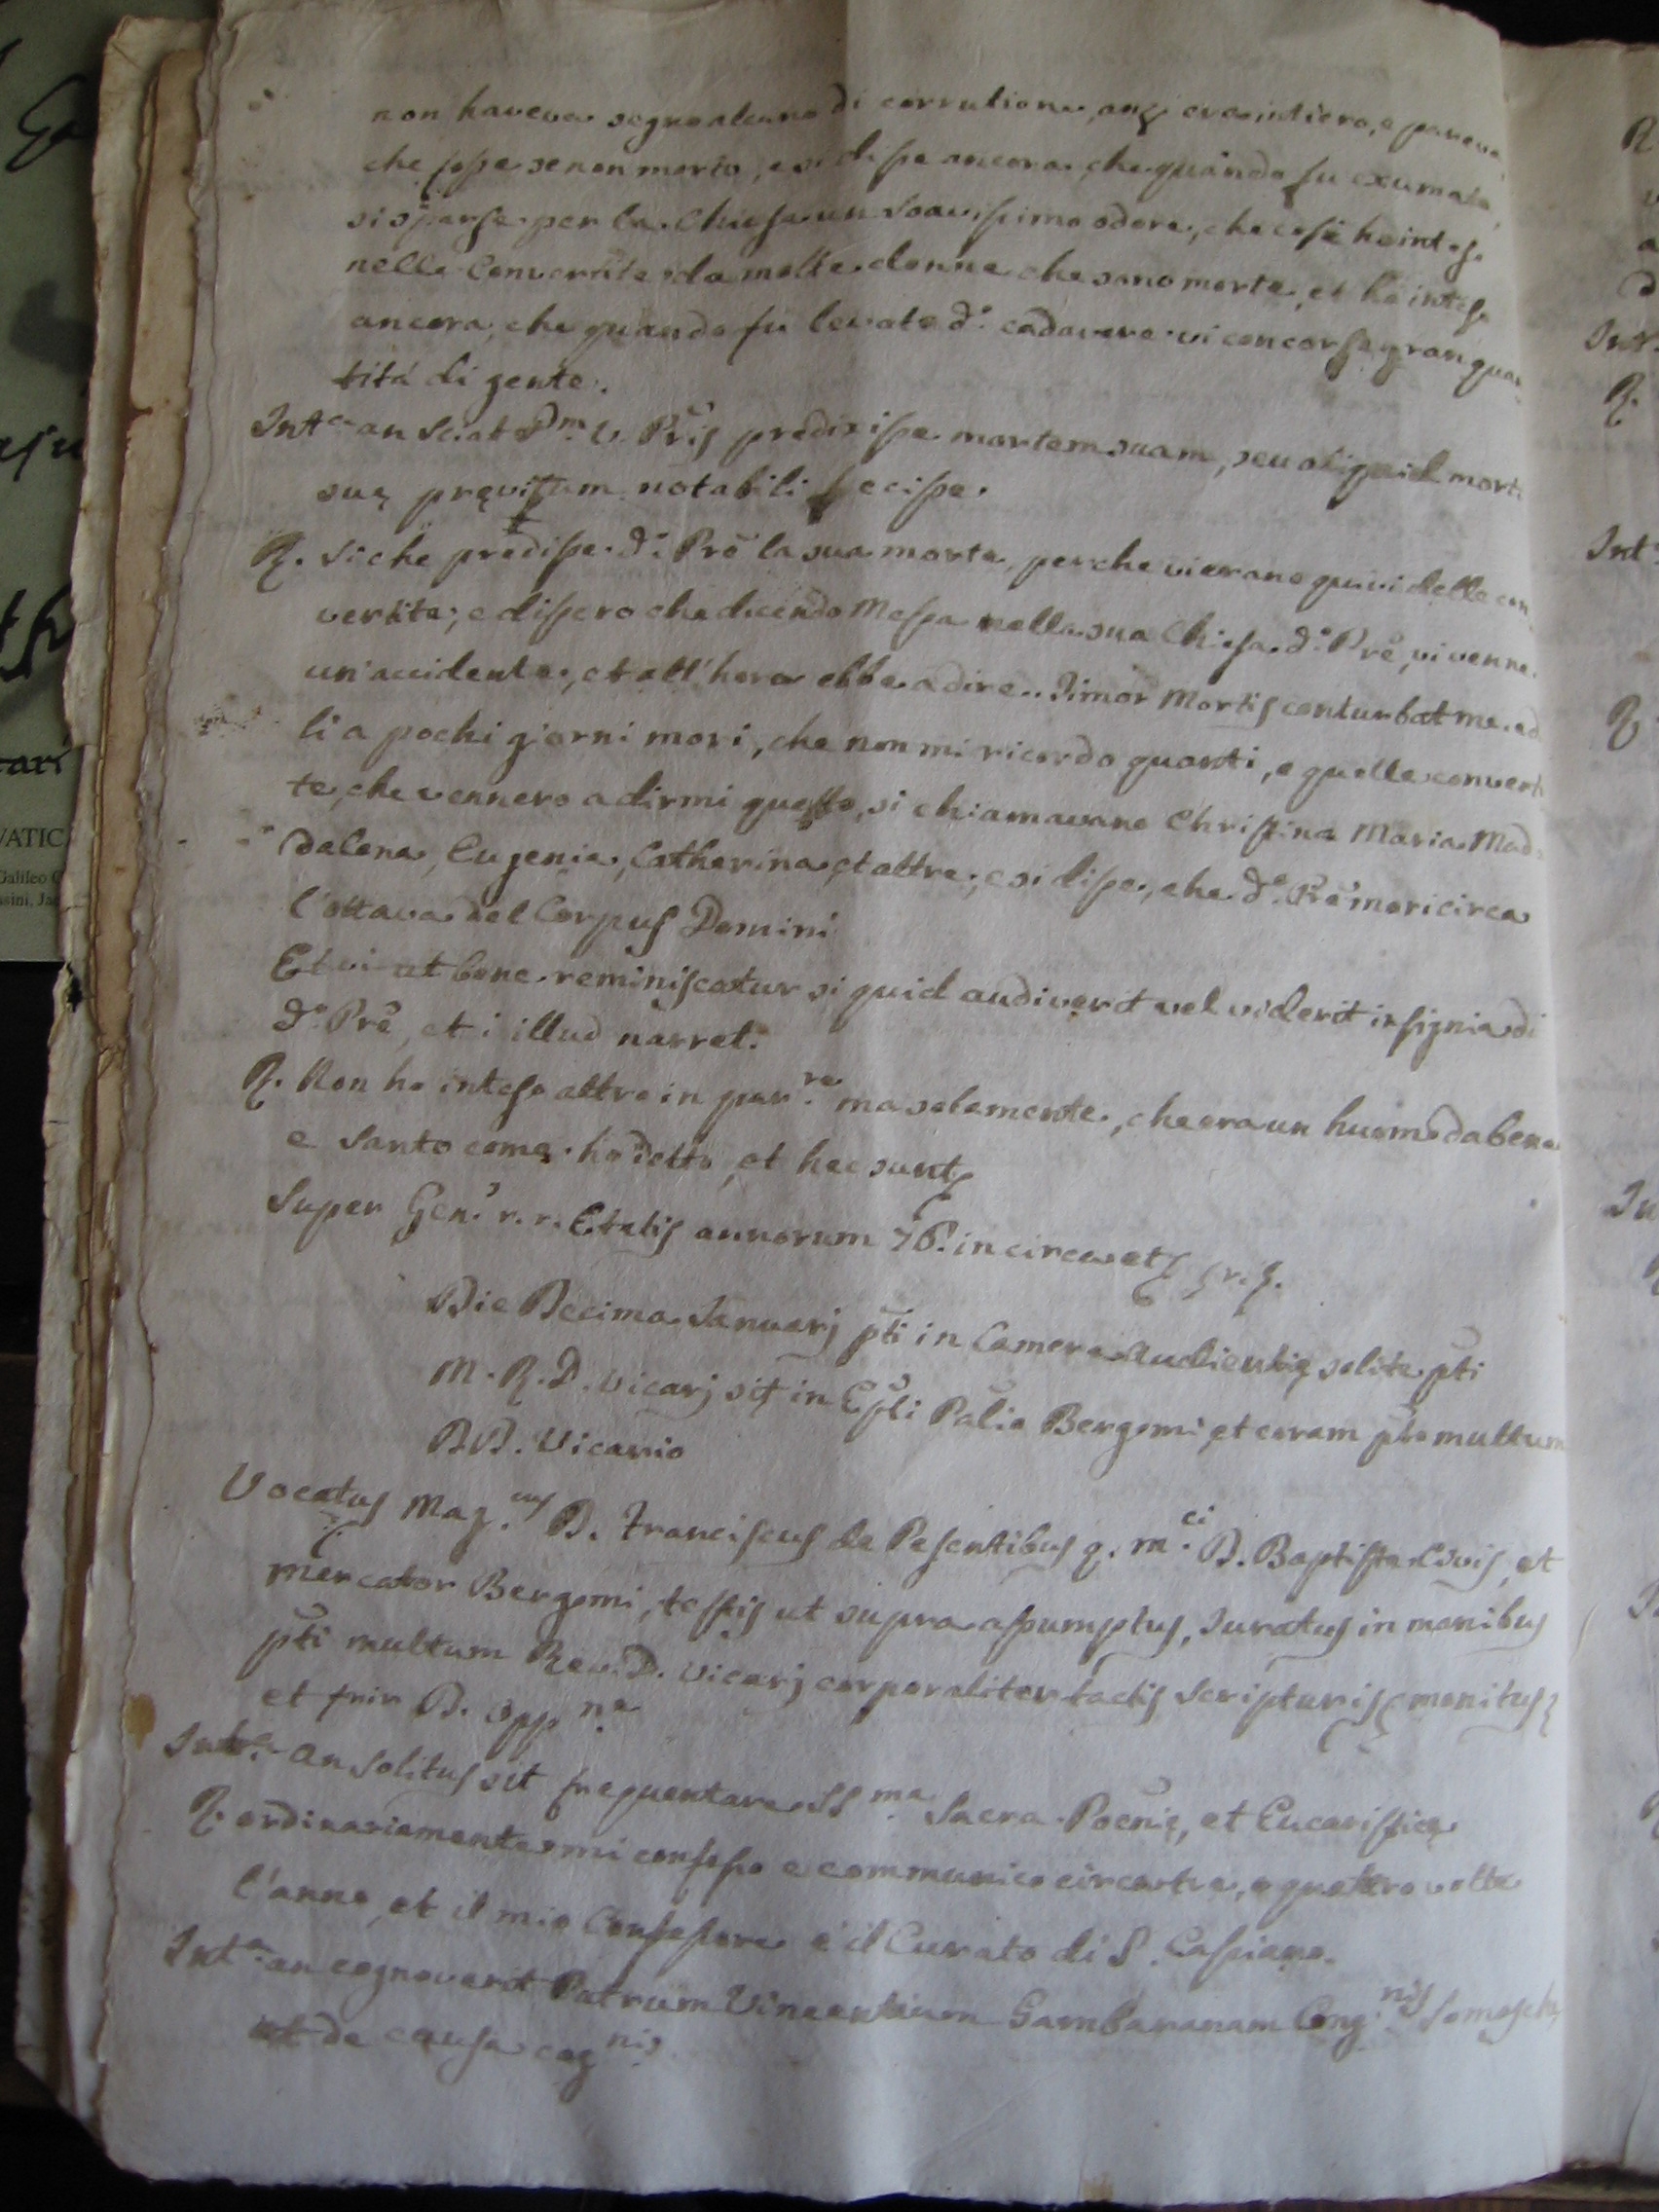 non haveva segno alcuno di corrutione, anzi era intiero, e pareva
che fosse se non morto, e si disse ancora, che quando fu exumato
si sparse per la Chiesa un soavissimo odore, che così ho inteso
nelle Convertite da molte donne che sono morte, et ho inteso
ancora, che quando fu levato d.º cadavere vi concorse gran quan
titá di gente.
Int.ᵃ an sciat Dm. V. Pris predixisse mortem suam, seu aliquid morti
suę pręvisum notabili fecisse.
R. Si che predisse d.º Prē la sua morte, perche vi erano quivi delle con
vertite, e dissero che dicendo Messa nella sua Chiesa d.º Prē, vi venne
un'accidente, et all'hora ebbe a dire. Timor Mortis conturbat me. ed
li a pochi giorni mori, che non mi ricordo quanti, e quelle converti
te, che vennero a dirmi questo, si chiamavano Christina Maria Mad
dalena, Eugenia, Catherina, et altre, e si disse, che d.º Prē mori circa
l'ottava del Corpus Domini
Et ut bene reminiscatur si quid audiverit vel viderit insignia di
d.º Prē, et illud narret.
R. Non ho inteso altro in par.re ma solamente, che era un huomo da bene
e Santo come ho detto, et hec sunt
Super Gen. r. r. Etatis annorum 76. in circa et
Die Decima Januarj pti in Camera Audientię solite pti
M. R. D. Vicarj sit in Epli Palio Bergomi et coram pto multum
R.D. Vicario
Vocatus Mag.cus D. Franciscus de Pesentibus q. m.ci D. Baptista Civis, et
mercator Bergomi, testis ut supra assumptus, Juratus in manibus
pti multum Rev. D. Vicarj corporaliter tactis scripturis monitus
et D. opp.na
Int.ᵃ an solitus sit frequentare SS.ma Sacra Poenię, et Eucaristię
R. ordinariamente mi confesso e communico circa tre, o quattro volte
l'anno, et il mio Confessore è il Curato di S. Cassiano.
Int.ᵃ an cognoverit Patrum Vincentium Gambaranam Cong.nis Somasche
et de causa cog.nis